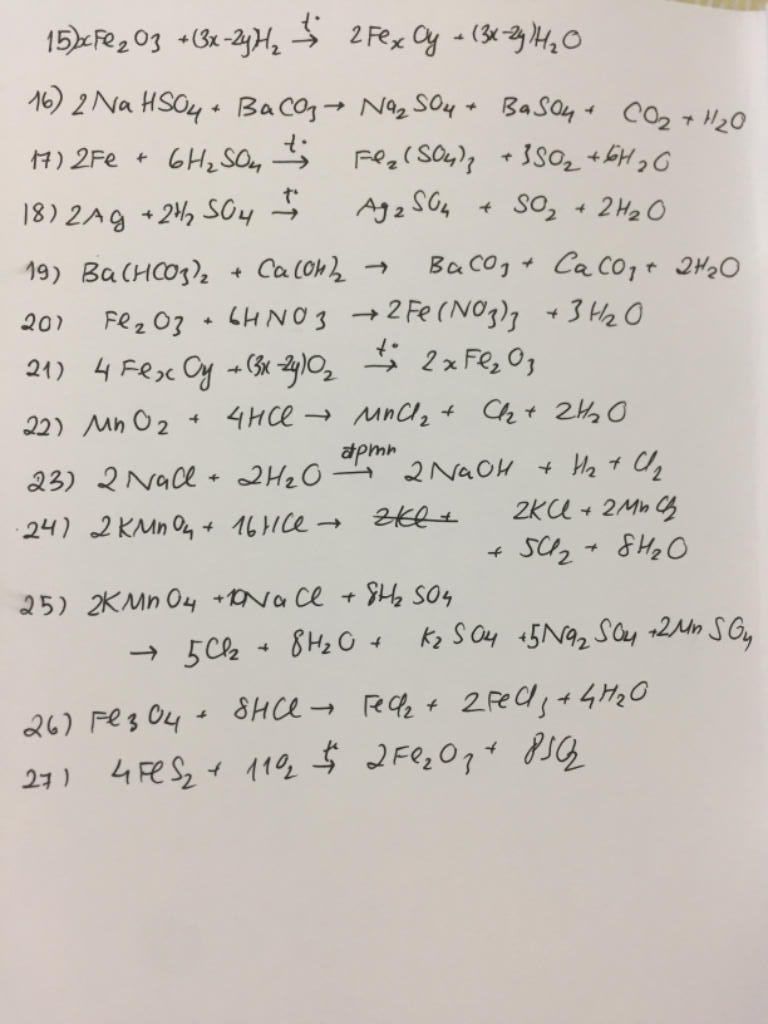 15) xFe₂O₃ + (3x-2y)H₂ →(t°) 2FexOy + (3x-2y)H₂O
16) 2NaHSO₄ + BaCO₃ → Na₂SO₄ + BaSO₄ + CO₂ + H₂O
17) 2Fe + 6H₂SO₄ →(t°) Fe₂(SO₄)₃ + 3SO₂ + 6H₂O
18) 2Ag + 2H₂SO₄ →(t°) Ag₂SO₄ + SO₂ + 2H₂O
19) Ba(HCO₃)₂ + Ca(OH)₂ → BaCO₃ + CaCO₃ + 2H₂O
20) Fe₂O₃ + 6HNO₃ → 2Fe(NO₃)₃ + 3H₂O
21) 4FexOy + (3x-2y)O₂ →(t°) 2xFe₂O₃
22) MnO₂ + 4HCl → MnCl₂ + Cl₂ + 2H₂O
23) 2NaCl + 2H₂O →(đpmn) 2NaOH + H₂ + Cl₂
24) 2KMnO₄ + 16HCl → 2KCl + 2MnCl₂
+ 5Cl₂ + 8H₂O
25) 2KMnO₄ + 10NaCl + 8H₂SO₄
→ 5Cl₂ + 8H₂O + K₂SO₄ + 5Na₂SO₄ + 2MnSO₄
26) Fe₃O₄ + 8HCl → FeCl₂ + 2FeCl₃ + 4H₂O
27) 4FeS₂ + 11O₂ →(t°) 2Fe₂O₃ + 8SO₂